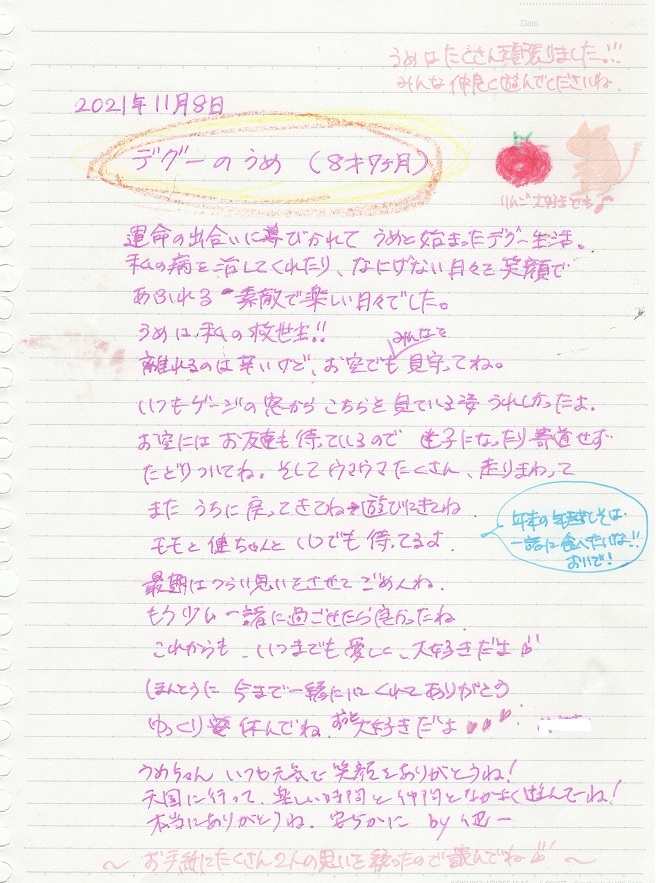 Date
うめはたくさん頑張りました。!!
みんな仲良く遊んでくださいね.
2021年11月8日
デグーのうめ (8才9ヶ月)
りんご大好きでち♪
運命の出合いに導びかれて うめと始まったデグー生活。
私の病を治してくれたり、なにげない日々を笑顔で
あふれる 素敵で楽しい日々でした。
うめは、私の救世主!!
離れるのは辛いけど、お空でもみんなを見守ってね。
いつもゲージの窓からこちらを見ている姿 うれしかったよ.
お空にはお友達も待っているので 迷子になったり寄道せず
たどりついてね。そしてウマウマたくさん、走りまわって
また うちに戻ってきてね 遊びにきてね
モモと健ちゃんといつでも待ってるよ.
年末の年越しそば、
一緒に食べたいな!!
おいで!
最期はつらい思いをさせてごめんね.
もう少し一緒に過ごせたら良かったね.
これからも、いつまでも愛しく、大好きだよ
ほんとうに 今まで一緒にいてくれてありがとう
ゆっくり 休んでね. ずっと大好きだよ
うめちゃん いつも元気で笑顔をありがとうね!
天国に行って、楽しい時間と仲間となかよく遊んでーね!
本当にありがとうね. 安らかに by 健一
～ お手紙にたくさん2人の思いを綴ったので読んでね ～